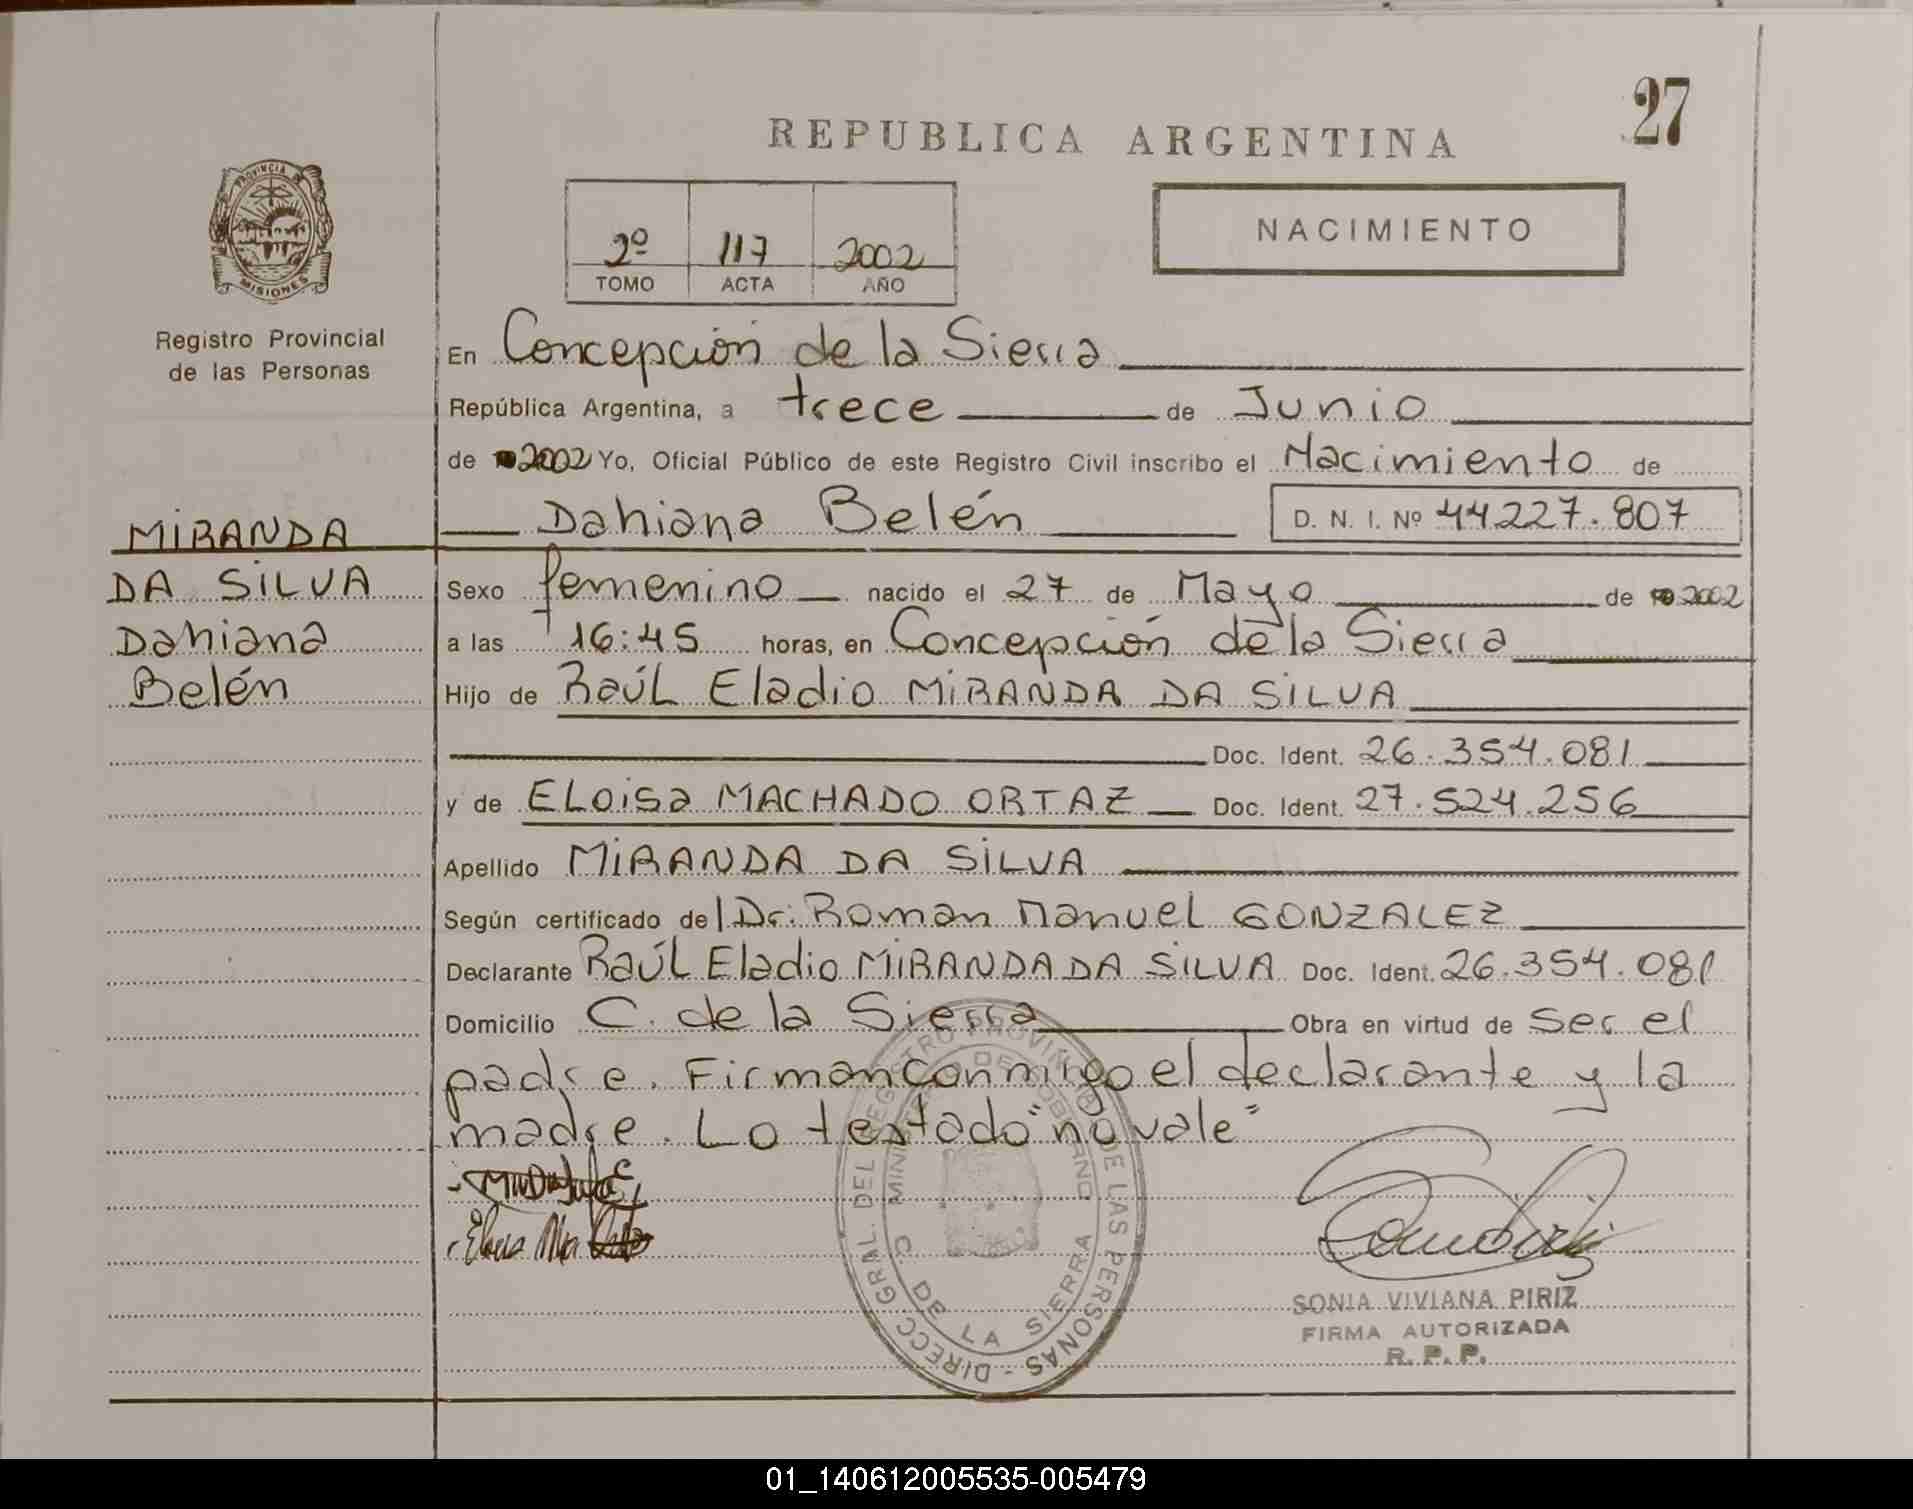 27
REPUBLICA ARGENTINA
PROVINCIA DE
MISIONES
Registro Provincial
de las Personas
2º 117 2002
TOMO ACTA AÑO
NACIMIENTO
En Concepción de la Sierra
República Argentina, a trece de Junio
de 2002 Yo, Oficial Público de este Registro Civil inscribo el Nacimiento de
Dahiana Belén D. N. I. Nº 44227.807
MIRANDA
DA SILVA
Dahiana
Belén
Sexo femenino nacido el 27 de Mayo de 2002
a las 16:45 horas, en Concepción de la Sierra
Hijo de Raúl Eladio MIRANDA DA SILVA
Doc. Ident. 26.354.081
y de ELOISA MACHADO ORTAZ Doc. Ident. 27.524.256
Apellido MIRANDA DA SILVA
Según certificado de Dr. Roman Manuel GONZALEZ
Declarante Raúl Eladio MIRANDA DA SILVA Doc. Ident. 26.354.081
Domicilio C. de la Sierra Obra en virtud de ser el
padre. Firman conmigo el declarante y la
madre. Lo testado "no vale"
DIRECC. GRAL. DEL REGISTRO PROVINCIAL DE LAS PERSONAS -
MINISTERIO DE GOBIERNO
C. DE LA SIERRA
SONIA VIVIANA PIRIZ
FIRMA AUTORIZADA
R. P. P.
01_140612005535-005479